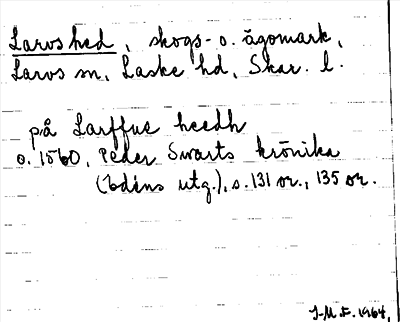 Larvs hed, skogs- o. ägomark,
Larvs sn, Laske hd, Skar. l.
på Larffue heedh
o. 1560, Peder Swarts krönika
(Edéns utg.), s. 131 or., 135 or.
J-M.F. 1964.